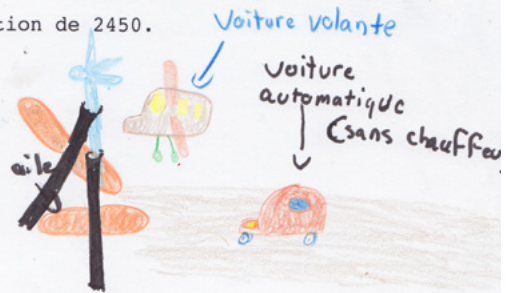 tion de 2450.
Voiture volante
voiture
automatique
(sans chauffeu
aile